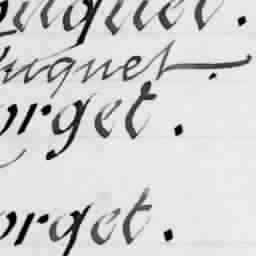 uquet.
uquet.
orget.
orget.